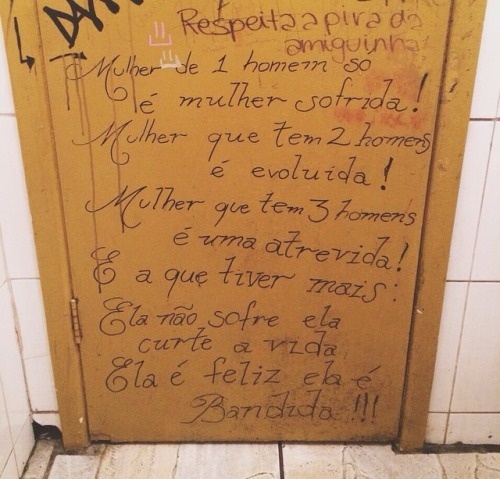 Respeita a pira da
amiguinha
Mulher de 1 homem so
é mulher sofrida!
Mulher que tem 2 homens
é evoluida!
Mulher que tem 3 homens
é uma atrevida!
E a que tiver mais:
Ela não sofre ela
curte a vida
Ela é feliz ela é
Bandida !!!